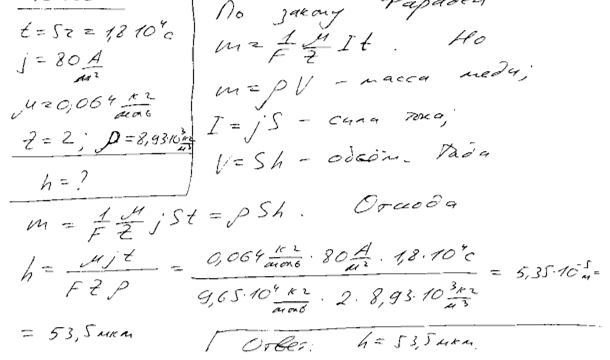 По закону Фарадея
t = 5г = 1,8 10⁴ c
j = 80 А/м²
μ = 0,064 кг/моль
z = 2; ρ = 8,93 10³ кг/м³
h = ?
m = 1/F μ/Z It. Но
m = ρV – масса меди;
I = jS – сила тока;
V = Sh – объём. Тогда
m = 1/F μ/Z jSt = ρSh. Отсюда
h = μjt / FZρ = 0,064 кг/моль · 80 А/м² · 1,8 · 10⁴ c / 9,65 · 10⁴ кг/моль · 2 · 8,93 · 10³ кг/м³ = 5,35 · 10⁻⁵ м =
= 53,5 мкм
Ответ: h = 53,5 мкм.